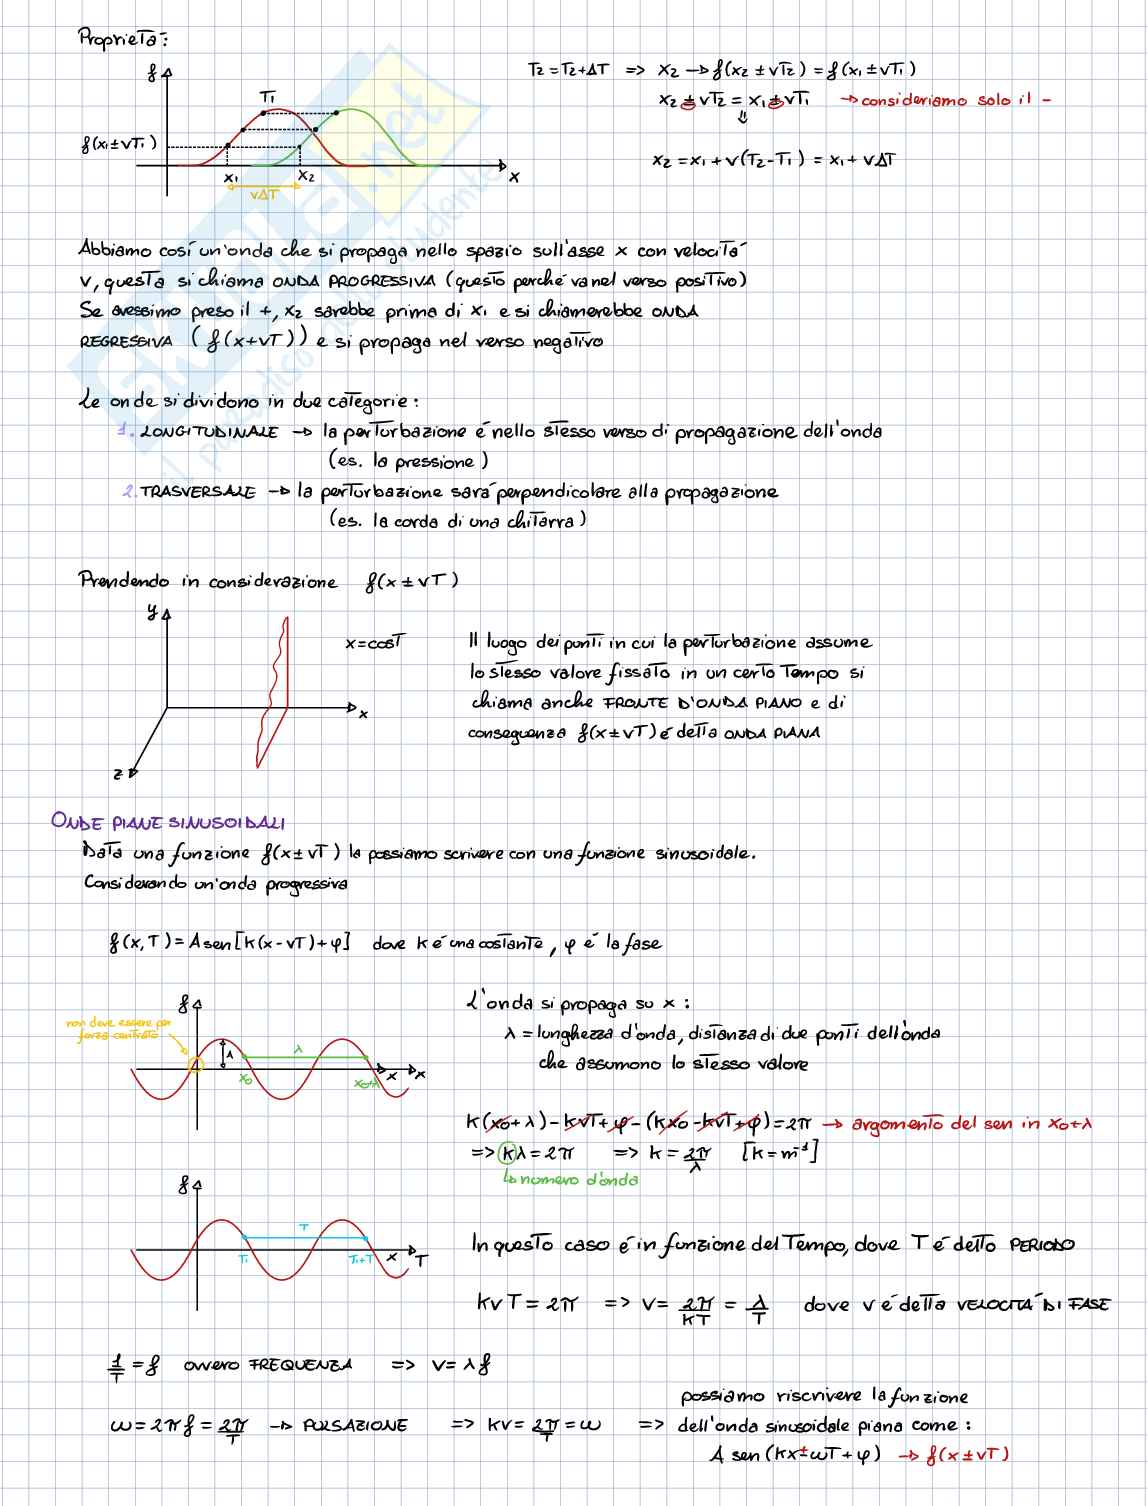 Proprietà:
f
T₁
f(x₁±vT₁)
x₁
x₂
x
vΔT
T₂=T₂+ΔT => x₂ → f(x₂±vT₂) = f(x₁±vT₁)
x₂±vT₂ = x₁±vT₁ → consideriamo solo il -
⇓
x₂ = x₁ + v(T₂-T₁) = x₁ + vΔT
Abbiamo così un'onda che si propaga nello spazio sull'asse x con velocità
v, questa si chiama ONDA PROGRESSIVA (questo perché va nel verso positivo)
Se avessimo preso il +, x₂ sarebbe prima di x₁ e si chiamerebbe ONDA
REGRESSIVA (f(x+vT)) e si propaga nel verso negativo
Le onde si dividono in due categorie:
1. LONGITUDINALE → la perturbazione é nello stesso verso di propagazione dell'onda
(es. la pressione)
2. TRASVERSALE → la perturbazione sará perpendicolare alla propagazione
(es. la corda di una chitarra)
Prendendo in considerazione f(x±vT)
y
x=cosT
x
z
Il luogo dei punti in cui la perturbazione assume
lo stesso valore fissato in un certo tempo si
chiama anche FRONTE D'ONDA PIANO e di
conseguenza f(x±vT) é detta ONDA PIANA
ONDE PIANE SINUSOIDALI
Data una funzione f(x±vT) la possiamo scrivere con una funzione sinusoidale.
Considerando un'onda progressiva
f(x,T) = A sen[k(x-vT)+φ] dove k é una costante, φ é la fase
f
non deve essere per
forza centrato
A
λ
x₀
x₀+λ
x
x
L'onda si propaga su x:
λ = lunghezza d'onda, distanza di due ponti dell'onda
che assumono lo stesso valore
k(x₀+λ)-kvT+φ-(kx₀-kvT+φ)=2π → argomento del sen in x₀+λ
=> kλ=2π => k=2π/λ [k=m⁻¹]
↳ numero d'onda
f
T
T₁
T₁+T
x
T
In questo caso é in funzione del Tempo, dove T é detto PERIODO
kvT=2π => v=2π/kT=λ/T dove v é detta VELOCITÁ DI FASE
1/T=f ovvero FREQUENZA => v=λf
ω=2πf=2π/T → PULSAZIONE => kv=2π/T=ω =>
possiamo riscrivere la funzione
dell'onda sinusoidale piana come:
A sen(kx±ωT+φ) → f(x±vT)